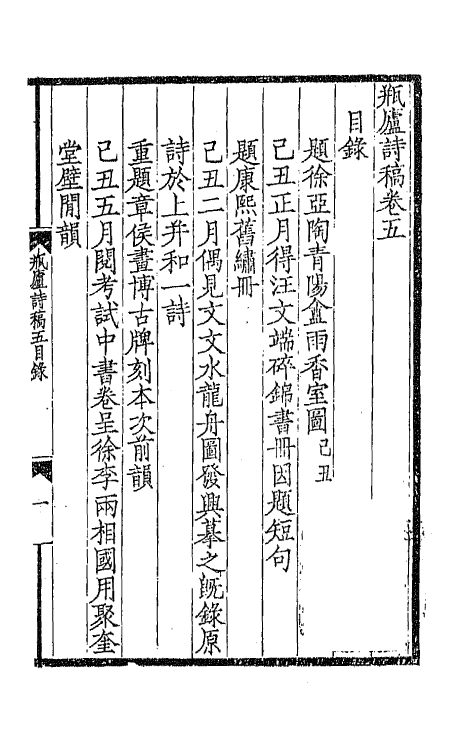 瓶廬詩稿卷五
目錄
題徐亞陶青陽盦雨香室圖己丑
己丑正月得汪文端碎錦書冊因題短句
題康熙舊繡冊
己丑二月偶見文文水龍舟圖發興摹之旣錄原
詩於上幷和一詩
重題章侯畫博古牌刻本次前韻
己丑五月閱考試中書卷呈徐李兩相國用聚奎
堂壁閒韻
瓶廬詩稿五目錄
一